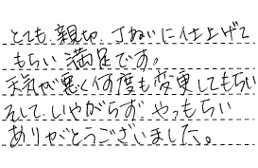 とても親切、丁ねいに仕上げて
もらい満足です。
天気が悪く何度も変更してもらい
そして、いやがらず やってもらい
ありがとうございました。